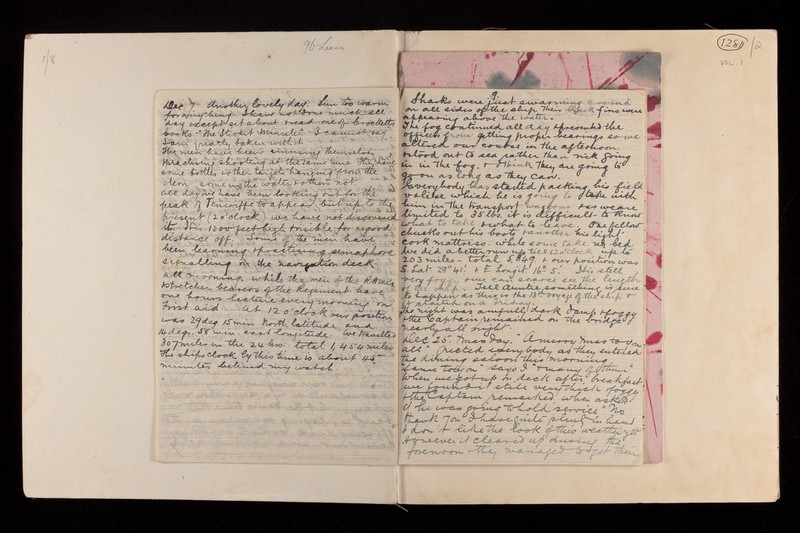 1/8
96 Leaves
1281/2
VOL. 1
Dec 7 Another lovely day. Sun too warm
for anything. I have not done much all
day except sit about & read one of Corelli's
books "The Silent Minute". I cannot say
I am greatly taken with it
The men have been amusing themselves
practicing shooting at the same time. They have
some bottles & other targets hanging from the
some in the water & others not
all day we have been looking out for the
peak of Teneriffe to appear, but up to the
present (2 o'clock) we have not discovered
it. It is 12000 feet high & visible for a good
distance off. Some of the men have
been learning & practicing semaphore
signalling on the navigation deck
all morning while the men of the R.A.M.C.
& stretcher bearers of the Regiment have
one hours lecture every morning on
First aid. At 12 o'clock our position
was 29 deg 15 min North latitude and
14 deg. 58 min east longitude. We travelled
307 miles in the 24 hrs. total 1,454 miles
The ships clock by this time is about 45
minutes behind my watch
9.
Sharks were just swarming around
on all sides of the ship. Their black fins were
appearing above the water.
The fog continued all day & prevented the
officers from getting proper bearings so we
altered our course in the afternoon
& stood out to sea rather than risk going
in in the fog. I think they are going to
go on as long as they can.
Everybody has started packing his field
valise which he is going to take with
him in the transport waggons & as we are
limited to 35 lbs. it is difficult to know
what to take & what to leave. One fellow
chucks out his boots & another his
cork mattress. while some take no bed
We did a better run up till 12 o'clock up to
203 miles - total 5,849. & our position was
S. Lat 28° 41' & E. Longit 16° 5'. It is still
very foggy, one can scarce see the length
of the ship. I feel certain something is sure
to happen as this is the 13th voyage of the ship &
we started on a Friday.
The night was awfull, dark damp & foggy
& the Captain remained on the bridge
nearly all night.
Dec 25 Xmas Day. "A merry Xmas to you
all" greeted everybody as they entered
the dining saloon this morning.
"Same to you" says I "& many of them"
When we got up on deck after breakfast
we found it still very thick & foggy
& the Captain remarked, when asked
if he was going to hold service "No
thank you I have quite plenty in hand
I don't like the look of this weather yet"
However it cleared up during the
forenoon & they managed to get their